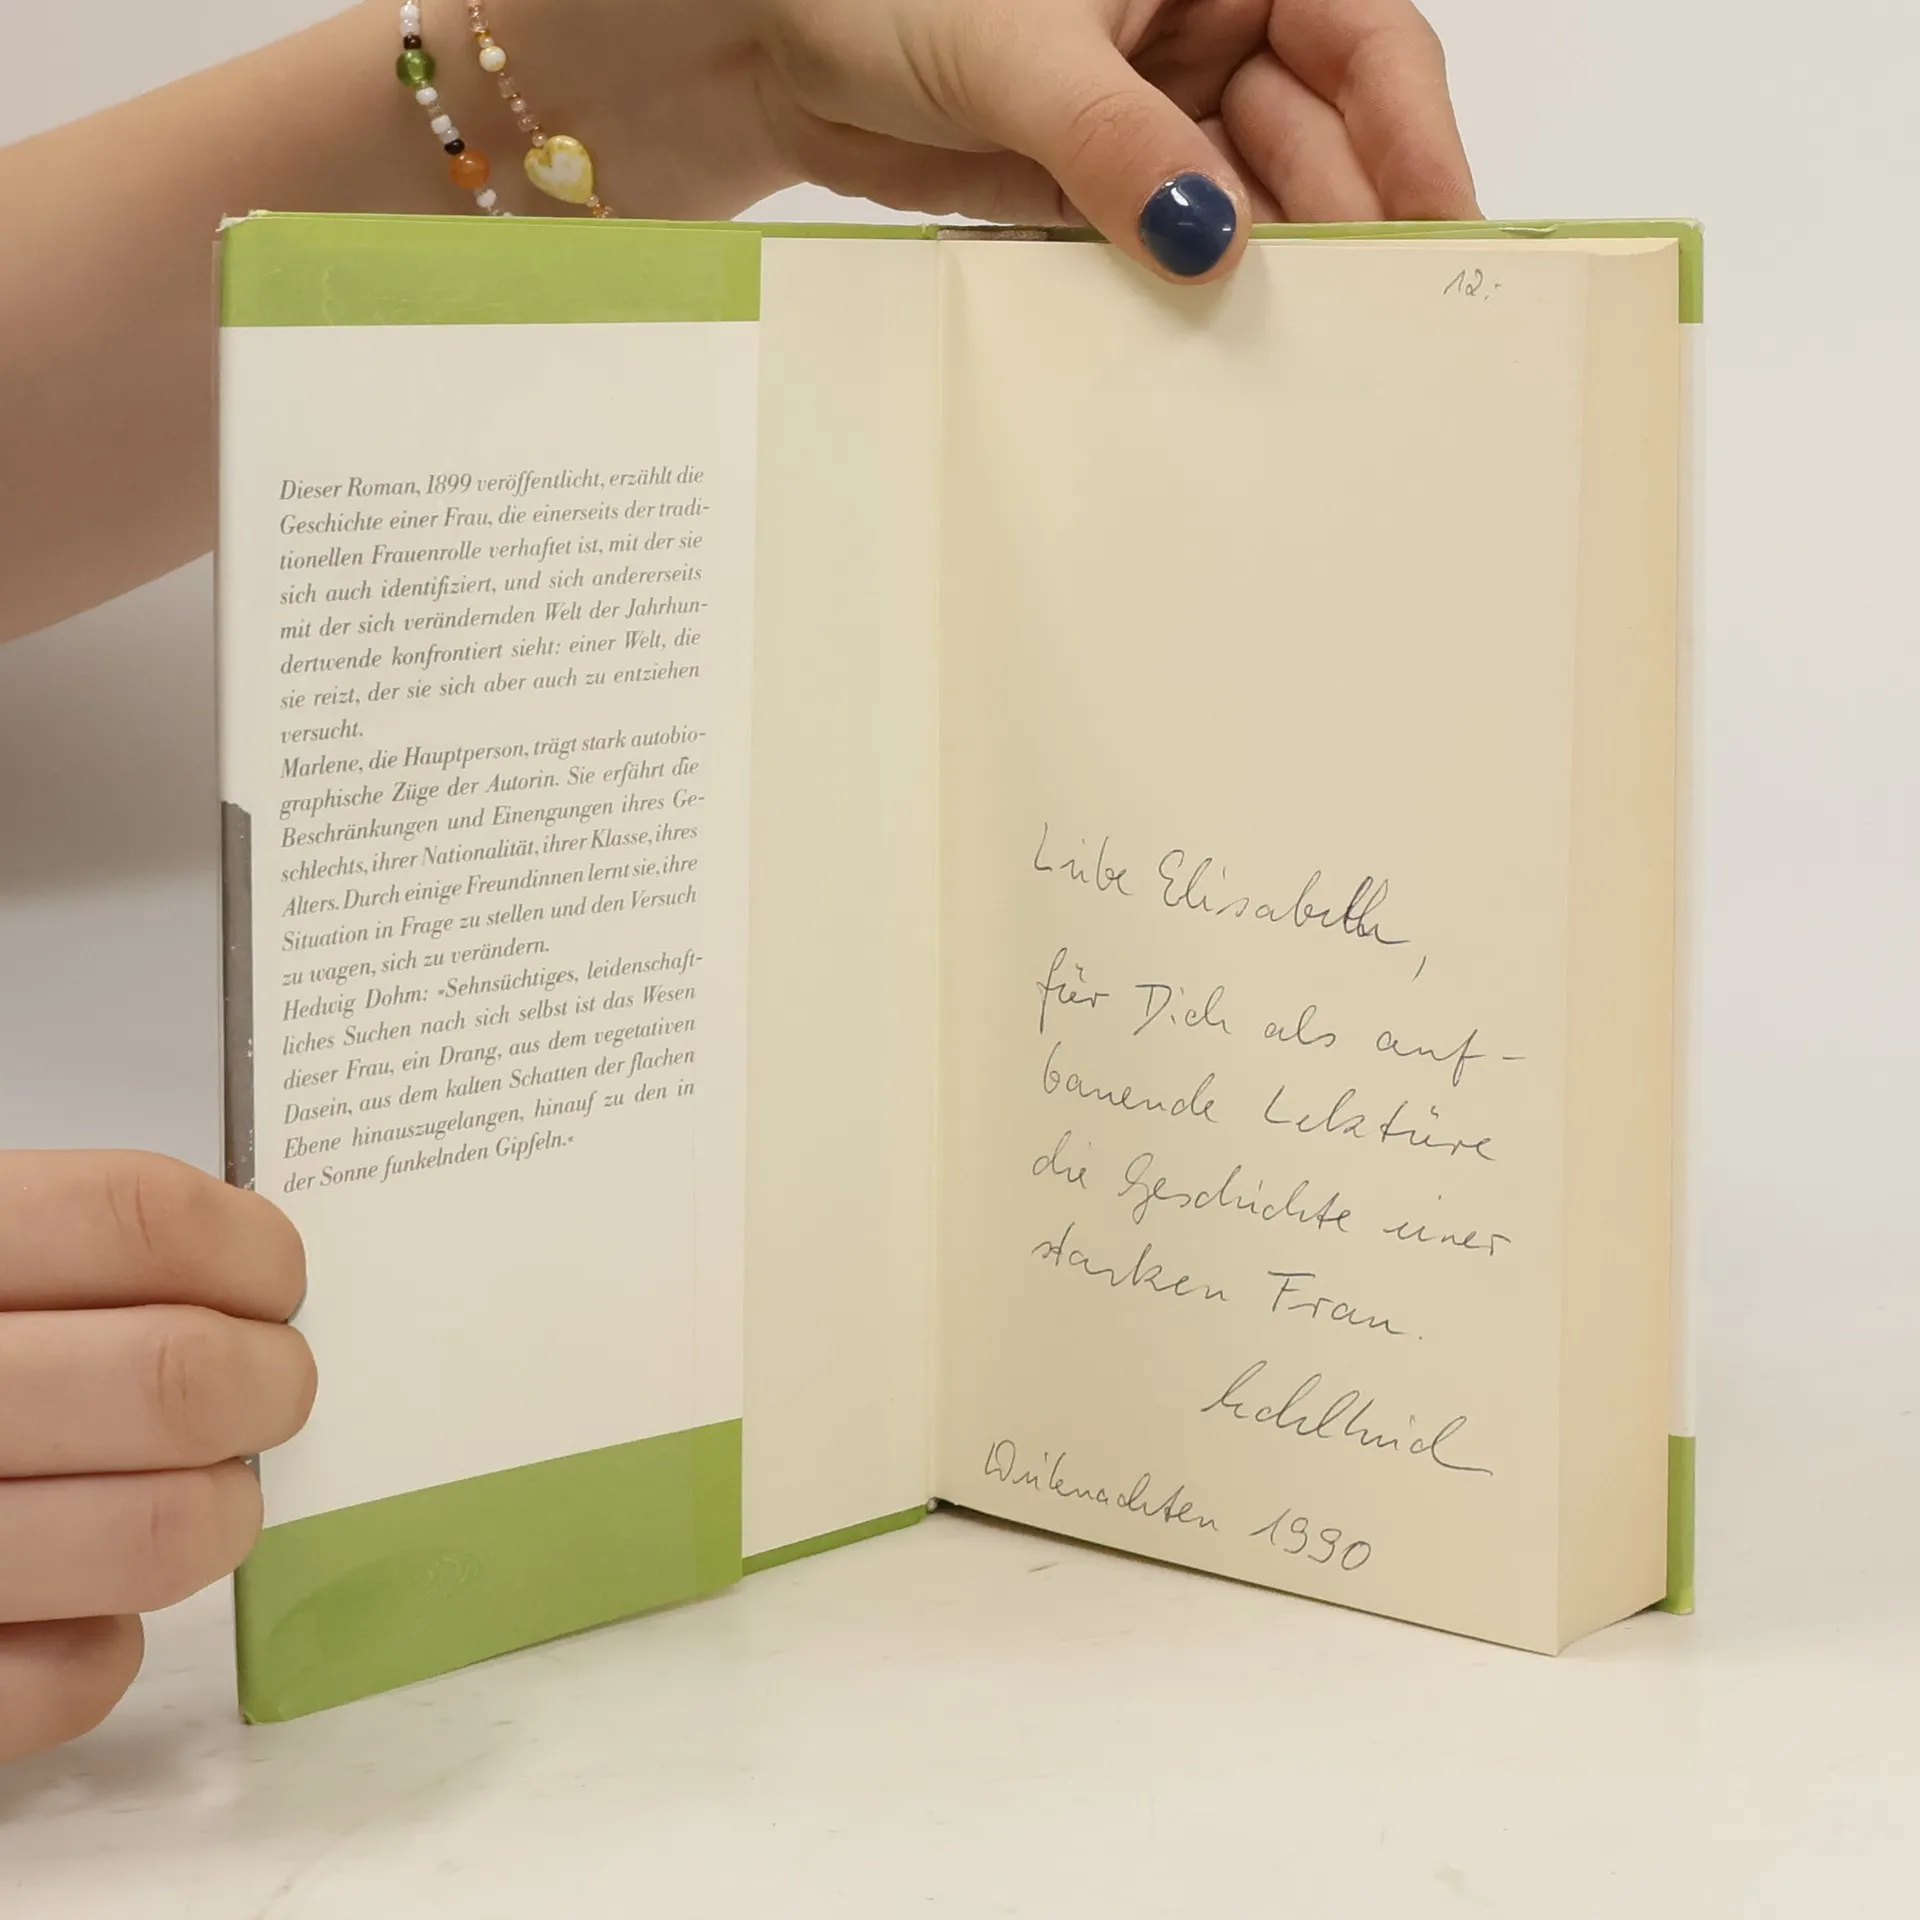 Dieser Roman, 1899 veröffentlicht, erzählt die
Geschichte einer Frau, die einerseits der tradi-
tionellen Frauenrolle verhaftet ist, mit der sie
sich auch identifiziert, und sich andererseits
mit der sich verändernden Welt der Jahrhun-
dertwende konfrontiert sieht: einer Welt, die
sie reizt, der sie sich aber auch zu entziehen
versucht.
Marlene, die Hauptperson, trägt stark autobio-
graphische Züge der Autorin. Sie erfährt die
Beschränkungen und Einengungen ihres Ge-
schlechts, ihrer Nationalität, ihrer Klasse, ihres
Alters. Durch einige Freundinnen lernt sie, ihre
Situation in Frage zu stellen und den Versuch
zu wagen, sich zu verändern.
Hedwig Dohm: »Sehnsüchtiges, leidenschaft-
liches Suchen nach sich selbst ist das Wesen
dieser Frau, ein Drang, aus dem vegetativen
Dasein, aus dem kalten Schatten der flachen
Ebene hinauszugelangen, hinauf zu den in
der Sonne funkelnden Gipfeln.«
12.-
Liebe Elisabeth,
für Dich als auf-
bauende Lektüre
die Geschichte einer
starken Frau.
Weihnachten 1990